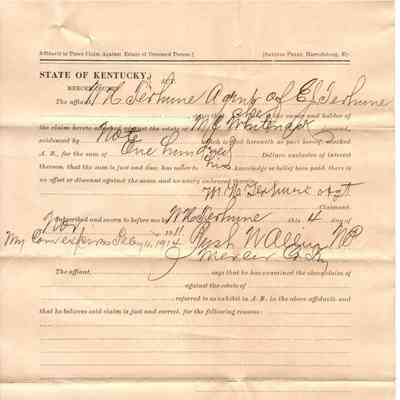 Affidavit to Prove Claim Against Estate of Deceased Person.] [Sentinel Print, Harrodsburg, Ky.
STATE OF KENTUCKY,
MERCER COUNTY
The affiant W H Terhune Agent of E J Terhune
states that She is the owner and holder of
the claim hereto against the estate of M J Whitenack
evidenced by Note which is filed herewith as part hereof, marked
A. B., for the sum of One Hundred Dollars exclusive of interest
thereon, that the sum is just and due, has never to his knowledge or belief been paid, there is
no offset or discount against the same and no usury embraced therein
W H Terhune agt
Claimant.
Subscribed and sworn to before me by W H Terhune this 4 day of
Nov 1911
My Com expires Feby 11, 1914 Rush W Allin NP
Mercer Co Ky
The affiant, says that he has examined the above claim of
against the estate of
, referred to as exhibit A. B. in the above affidavit and
that he believes said claim is just and correct, for the following reasons: